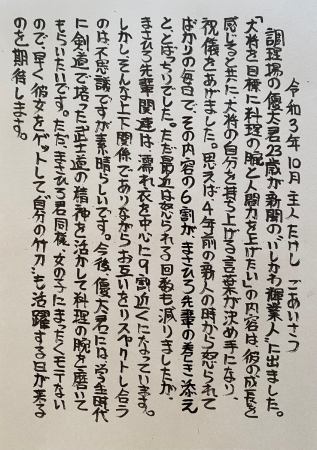 令和3年10月　主人たけし　ごあいさつ
調理場の優太君23歳が新聞の、いしかわ輝業人に出ました。
「大将を目標に料理の腕と人間力を上げたい」の内容は、彼の成長を
感じると共に大将の自分を持ち上げる言葉が決め手になり、
祝儀をあげました。思えば4年前の新人の時から怒られて
ばかりの毎日で、その内容の6割が、まさひろ先輩の巻き添え
とばっちりでした。ただ最近は怒られる回数も減りましたが、
まさひろ先輩関連は、濡れ衣を中心に9割近くになっています。
しかしそんな上下関係でありながらお互いをリスペクトし合う
のは不思議ですが素晴らしいです。今後、優太君には、学生時代
に剣道で培った武士道の精神を活かして料理の腕を磨いて
もらいたいです。ただ、まさひろ君同様、女の子にまったくモテない
ので、早く彼女をゲットして"自分の竹刀"も活躍する日が来る
のを期待します。